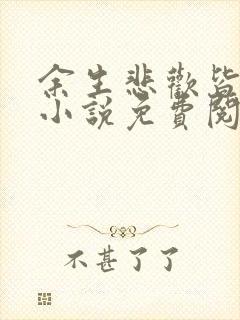 余生悲歡皆
小說免費閱
不甚了了